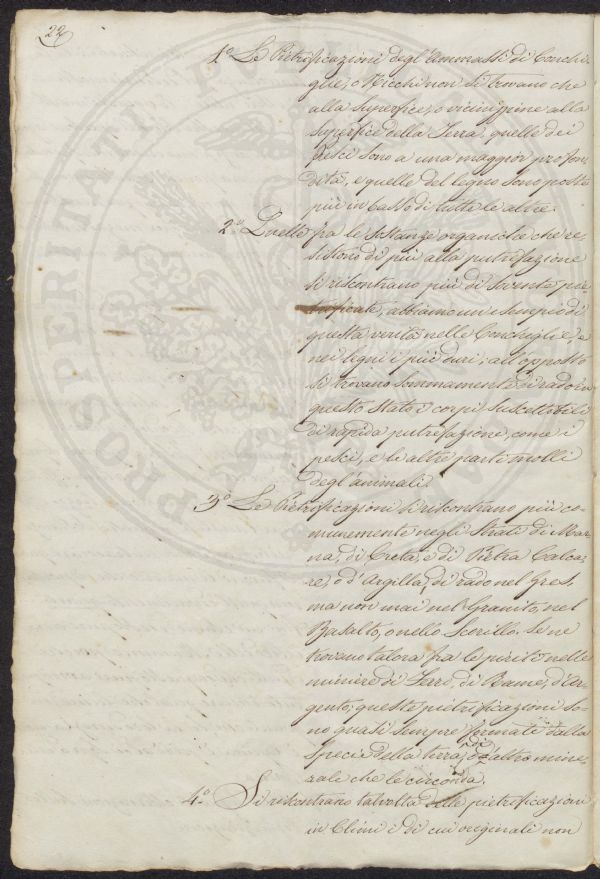 22
1.º Le Pietrificazioni degl'Ammassi di Conchi-
glie, o Nicchi non si trovano che
alla superfice, o vicinissime alla
superfice della Terra, quelle dei
pesci sono a una maggior profon-
dità, e quelle del legno sono poste
più in basso di tutte le altre.
2.º Quelle fra le sostanze organiche che re-
sistono di più alla putrefazione
si riscontrano più di sovente pie-
trificate, abbiamo un esempio di
questa verità nelle Conchiglie, e
nei legni i più duri; all'opposto
si trovano sommamente di rado in
questo stato i corpi suscettibili
di rapida putrefazione, come i
pesci, e le altre parti molli
degl'animali.
3.º Le Pietrificazioni si riscontrano più co-
munemente negli Strati di Mar-
na, di Creta, e di Pietra Calca-
re, o d'Argilla, di rado nel Gres,
ma non mai nel Granito, nel
Basalto, o nello Scorillo. Se ne
trovano talora fra le piriti nelle
miniere di Ferro, di Rame, d'Ar-
gento; queste pietrificazioni so-
no quasi sempre formate dalla
specie della terra, o di altro mine-
rale che le circonda.
4.º Si riscontrano talvolta delle pietrificazioni
in Climi i di cui originali non
PROSPERITATI PUBLICAE